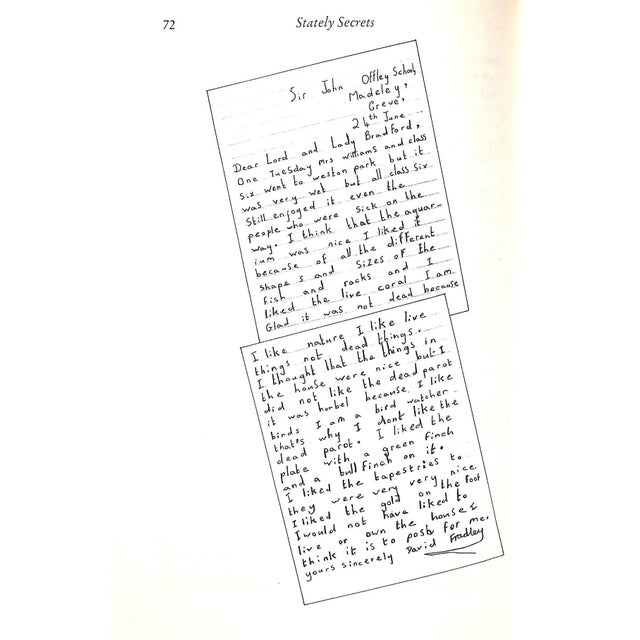 72
Stately Secrets
Sir John Offley School,
Madeley,
Crewe,
24th June
Dear Lord and Lady Bradford,
One Tuesday Mrs Williams and class
six went to weston park but it
was very wet but all class six
Still enjoyed it even the
people who were sick on the
way. I think that the aquar-
ium was nice I liked it
because of all the different
shape s and sizes of the
fish and rocks and I
liked the live coral I am
Glad it was not dead because
I like nature I like live
things not dead things.
I thought that the things in
the house were nice but I
did not like the dead parot
it was horbel because I like
birds I am a bird watcher
that's why I dont like the
dead parot. I liked the
plate with a green finch
and a bull finch on it.
I liked the tapestries to
they were very very nice.
I liked the gold on the roof
I would not have liked to
live or own the house I
think it is to posh for me.
yours sincerely David Fradley